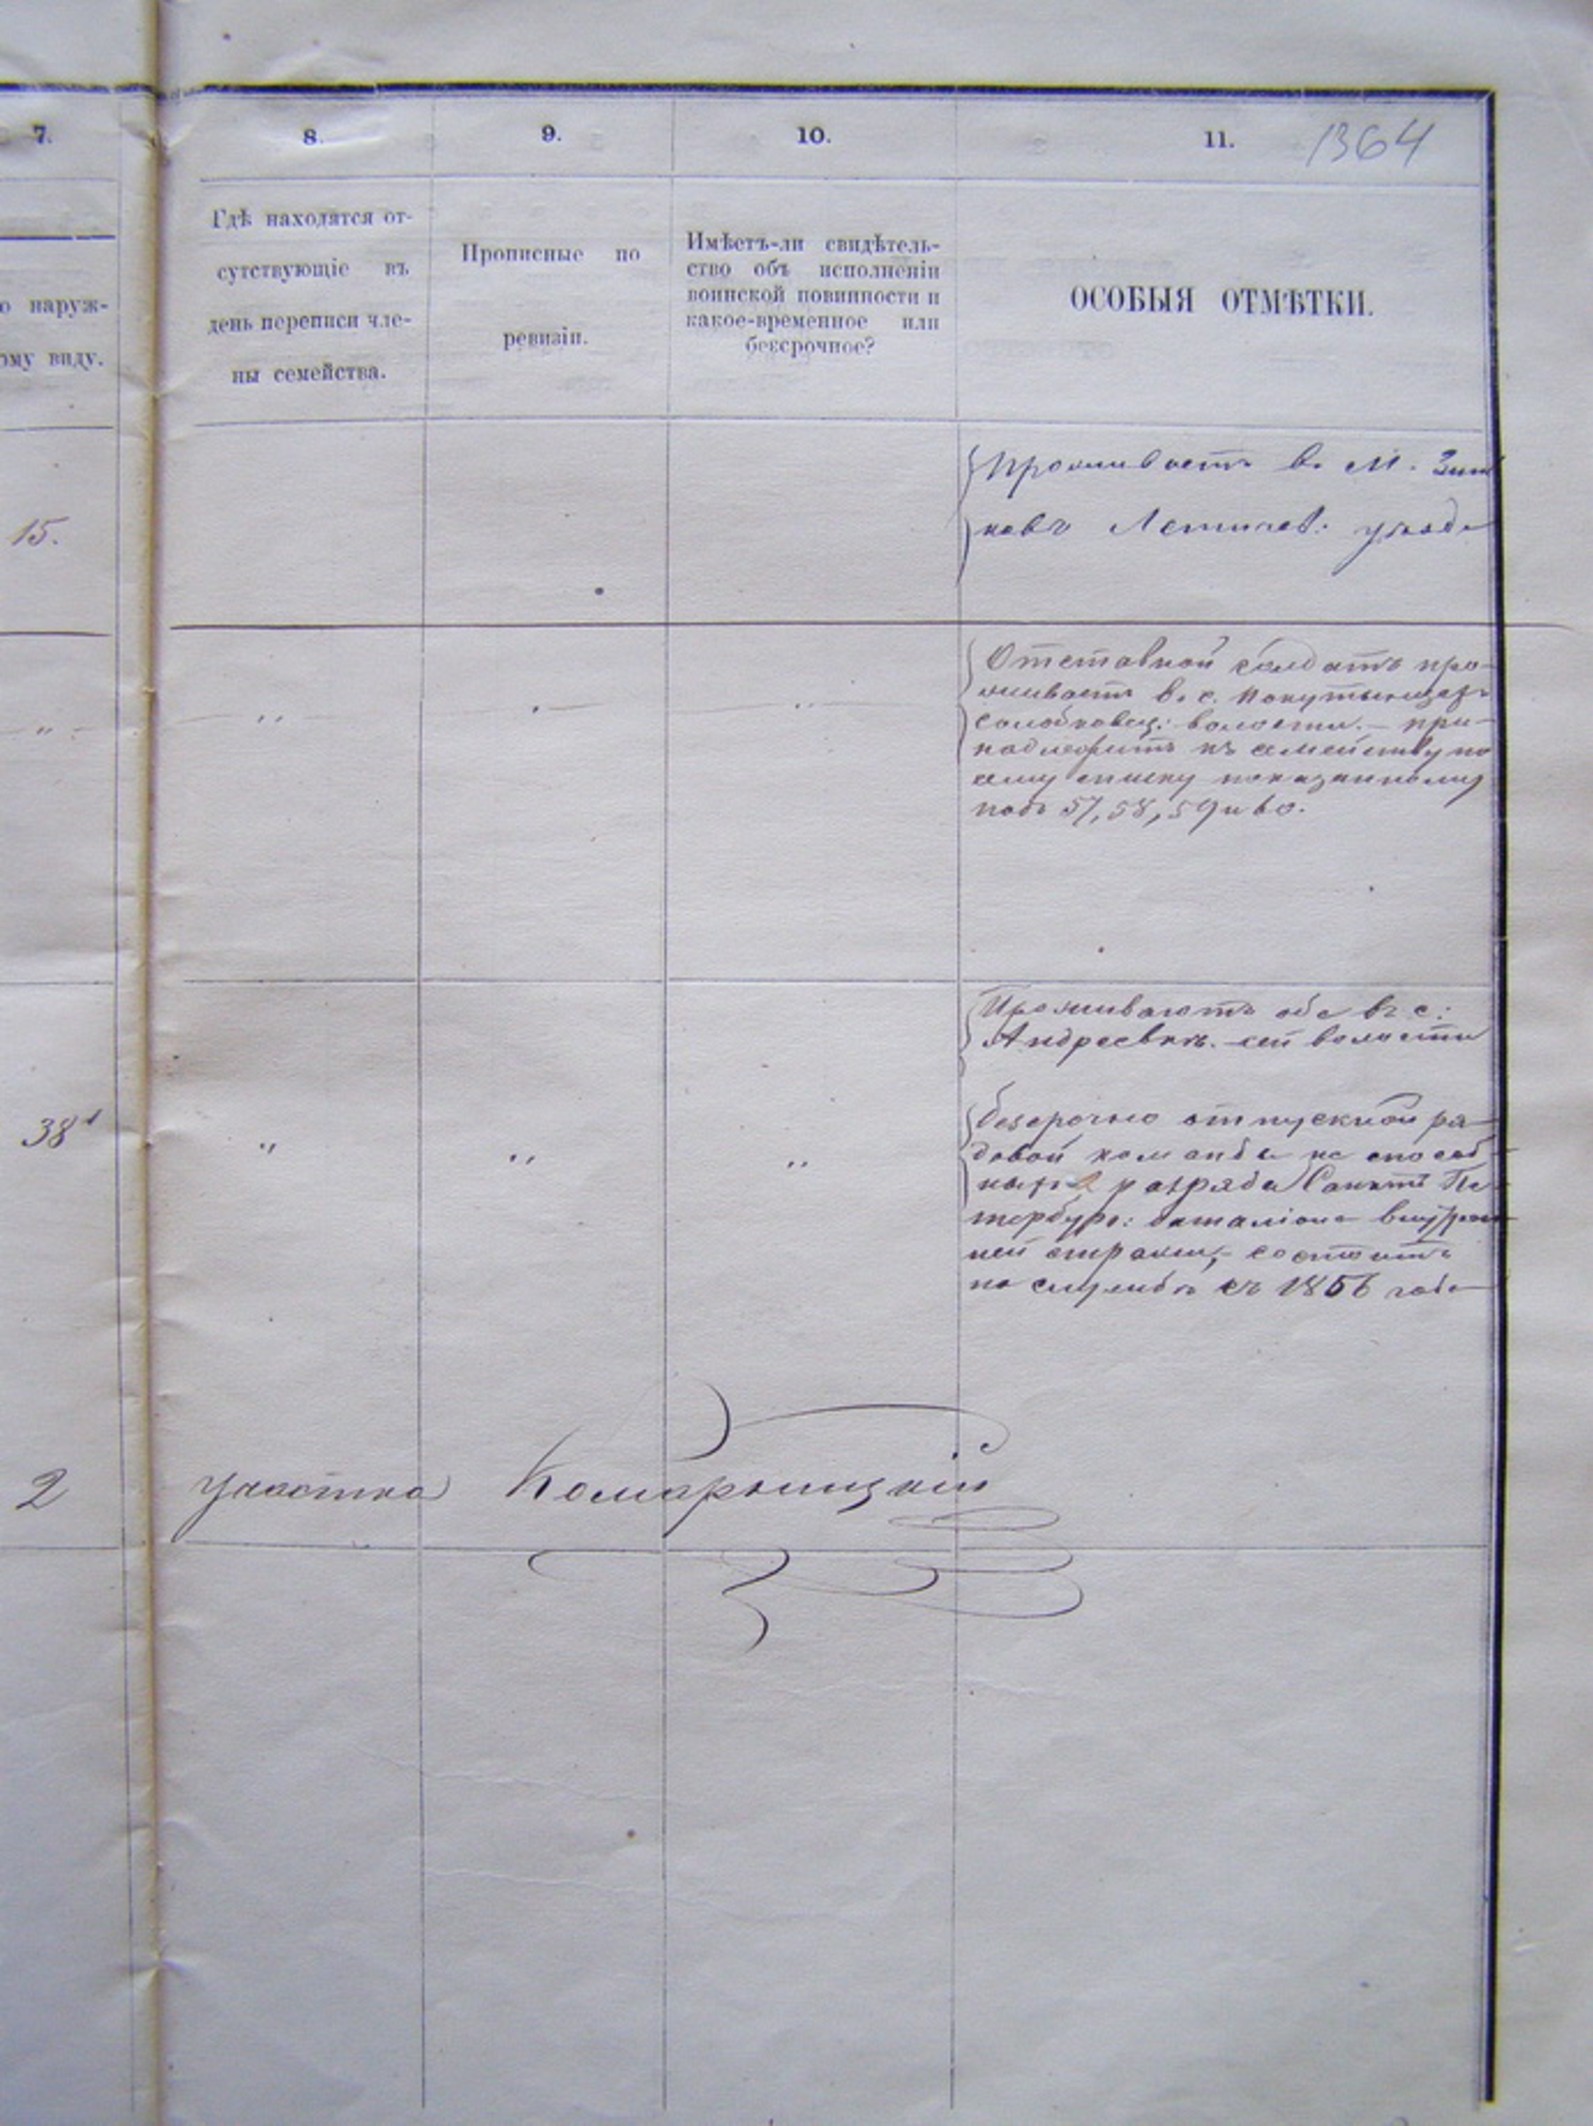 7.
8.
9.
10.
11.
1364
о наруж-
ому виду.
Гдѣ находятся от-
сутствующіе въ
день переписи чле-
ны семейства.
Прописные по
ревизіи.
Имѣетъ-ли свидѣтель-
ство объ исполненіи
воинской повинности и
какое-временное или
бессрочное?
ОСОБЫЯ ОТМѢТКИ.
15.
Проживаетъ в. М. Зинь
ковѣ Летичев: уѣзда
"
"
"
"
Отставной солдатъ про-
живаетъ в. с. Покутынцахъ
солобковец: волости. – при-
надлежитъ къ семейству по
сему списку показанному
подъ 57, 58, 59 и 60.
Проживаютъ оба въ с:
Андреевкѣ. сей волости
38
"
"
"
безсрочно отпускной ря-
довой команды не способ
ныхъ 2 разряда Санктъ Пе
тербург: баталіона внутрен
ней стражи, – состоитъ
на службѣ съ 1856 года
2
участка Комарницкій